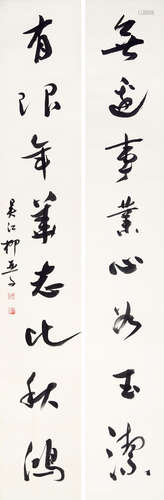 無邊事業心如玉潔
有限年華志比秋鴻
吳江柳亞子